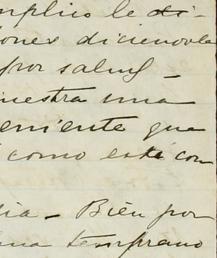 mplico le di-
ones diciendole
por salud_
uestra una
eniente que
como está con
dia_ Bien por
una temprano